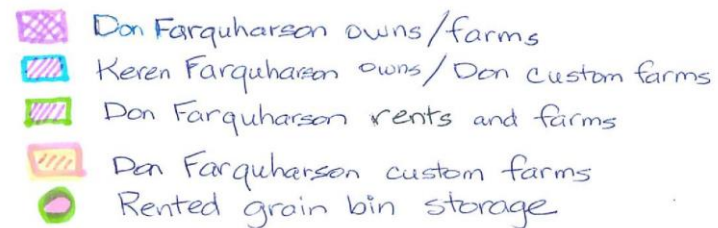 Don Farquharson owns/farms
Keren Farquharson owns/Don custom farms
Don Farquharson rents and farms
Don Farquharson custom farms
Rented grain bin storage